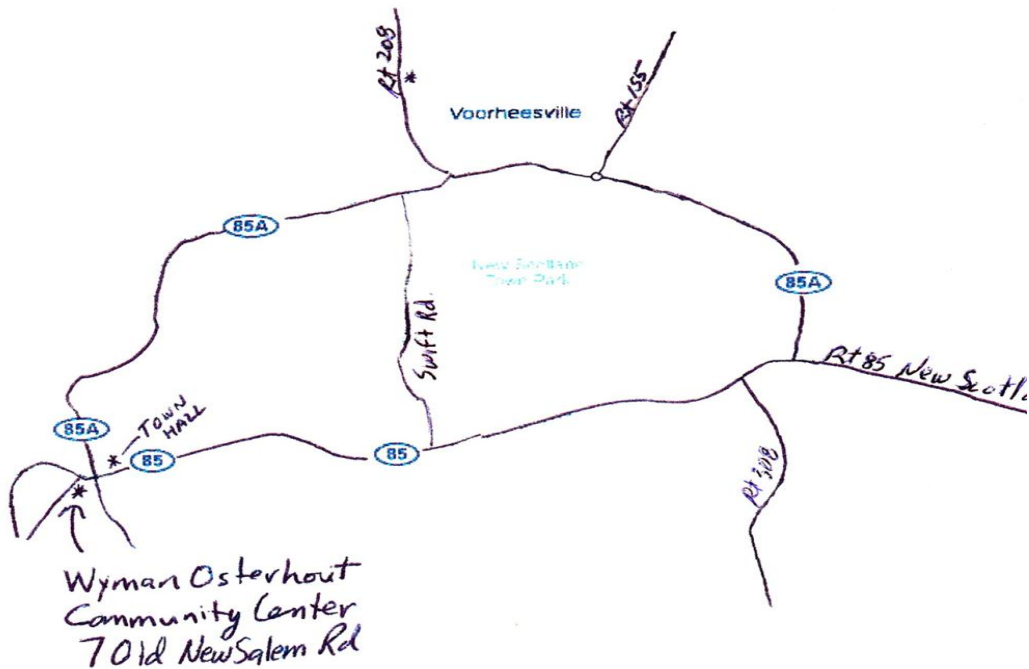 Rt 208
Rt 155
Voorheesville
85A
New Scotland
Town Park
85A
Swift Rd.
Rt 85 New Scotla
85A
TOWN
HALL
85
85
Rt 308
Wyman Osterhout
Community Center
7 Old New Salem Rd